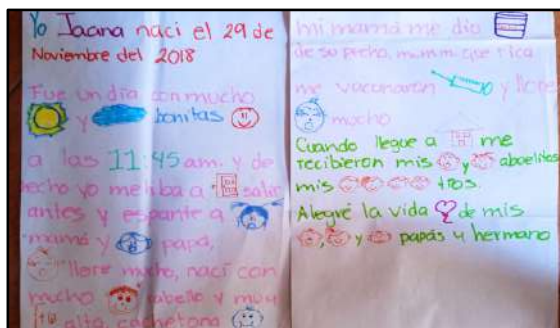 Yo Jaana nací el 29 de
Noviembre del 2018
Fue un día con mucho
y bonitas
a las 11:45 am. y de
hecho yo me iba a salir
antes y espante a
mamá y papá,
llore mucho, nací con
mucho cabello y muy
alta, cachetona
mi mamá me dio
de su pecho, mmm. que rica
me vacunaron y llore
mucho
Cuando llegue a me
recibieron mis y abuelitos
mis tíos.
Alegré la vida de mis
, y papás y hermano